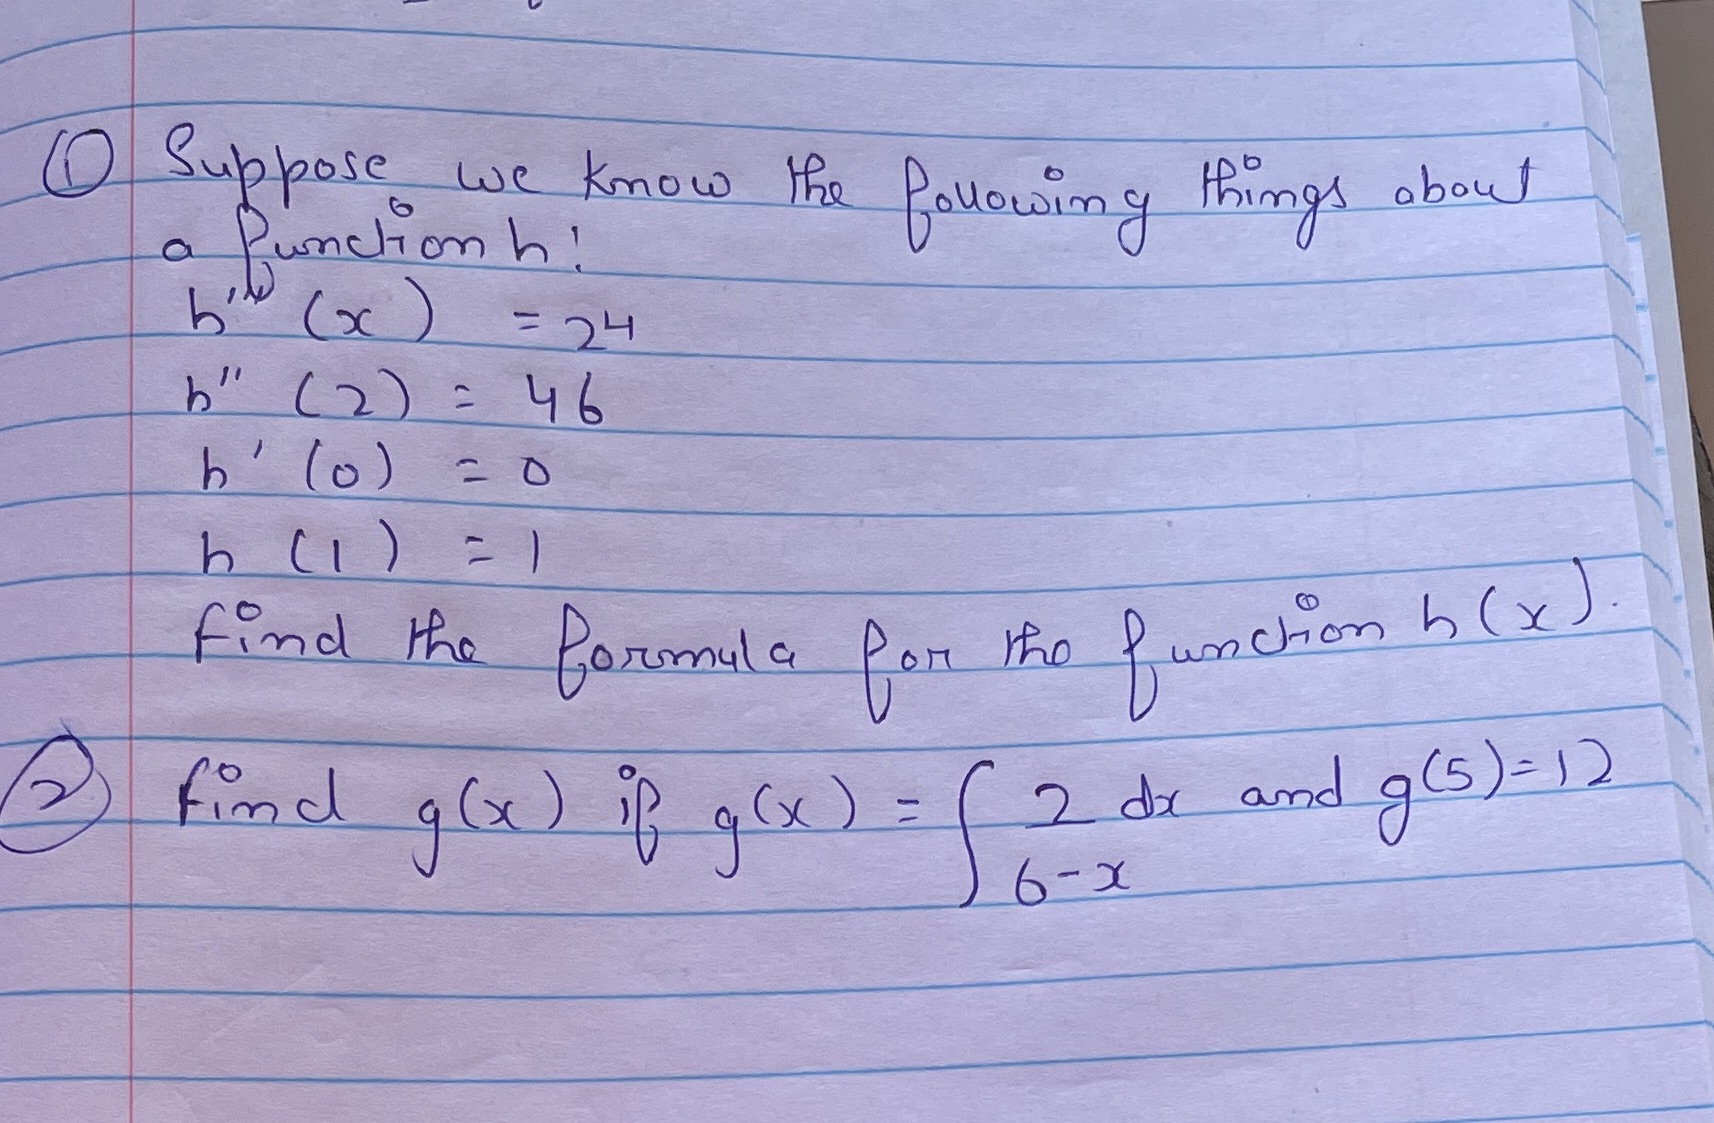 ① Suppose we know the following things about
a function h:
h''' (x) = 24
h'' (2) = 46
h' (0) = 0
h (1) = 1
find the formula for the function h(x).
② find g(x) if g(x) = ∫ 2 dx and g(5)=12
6-x